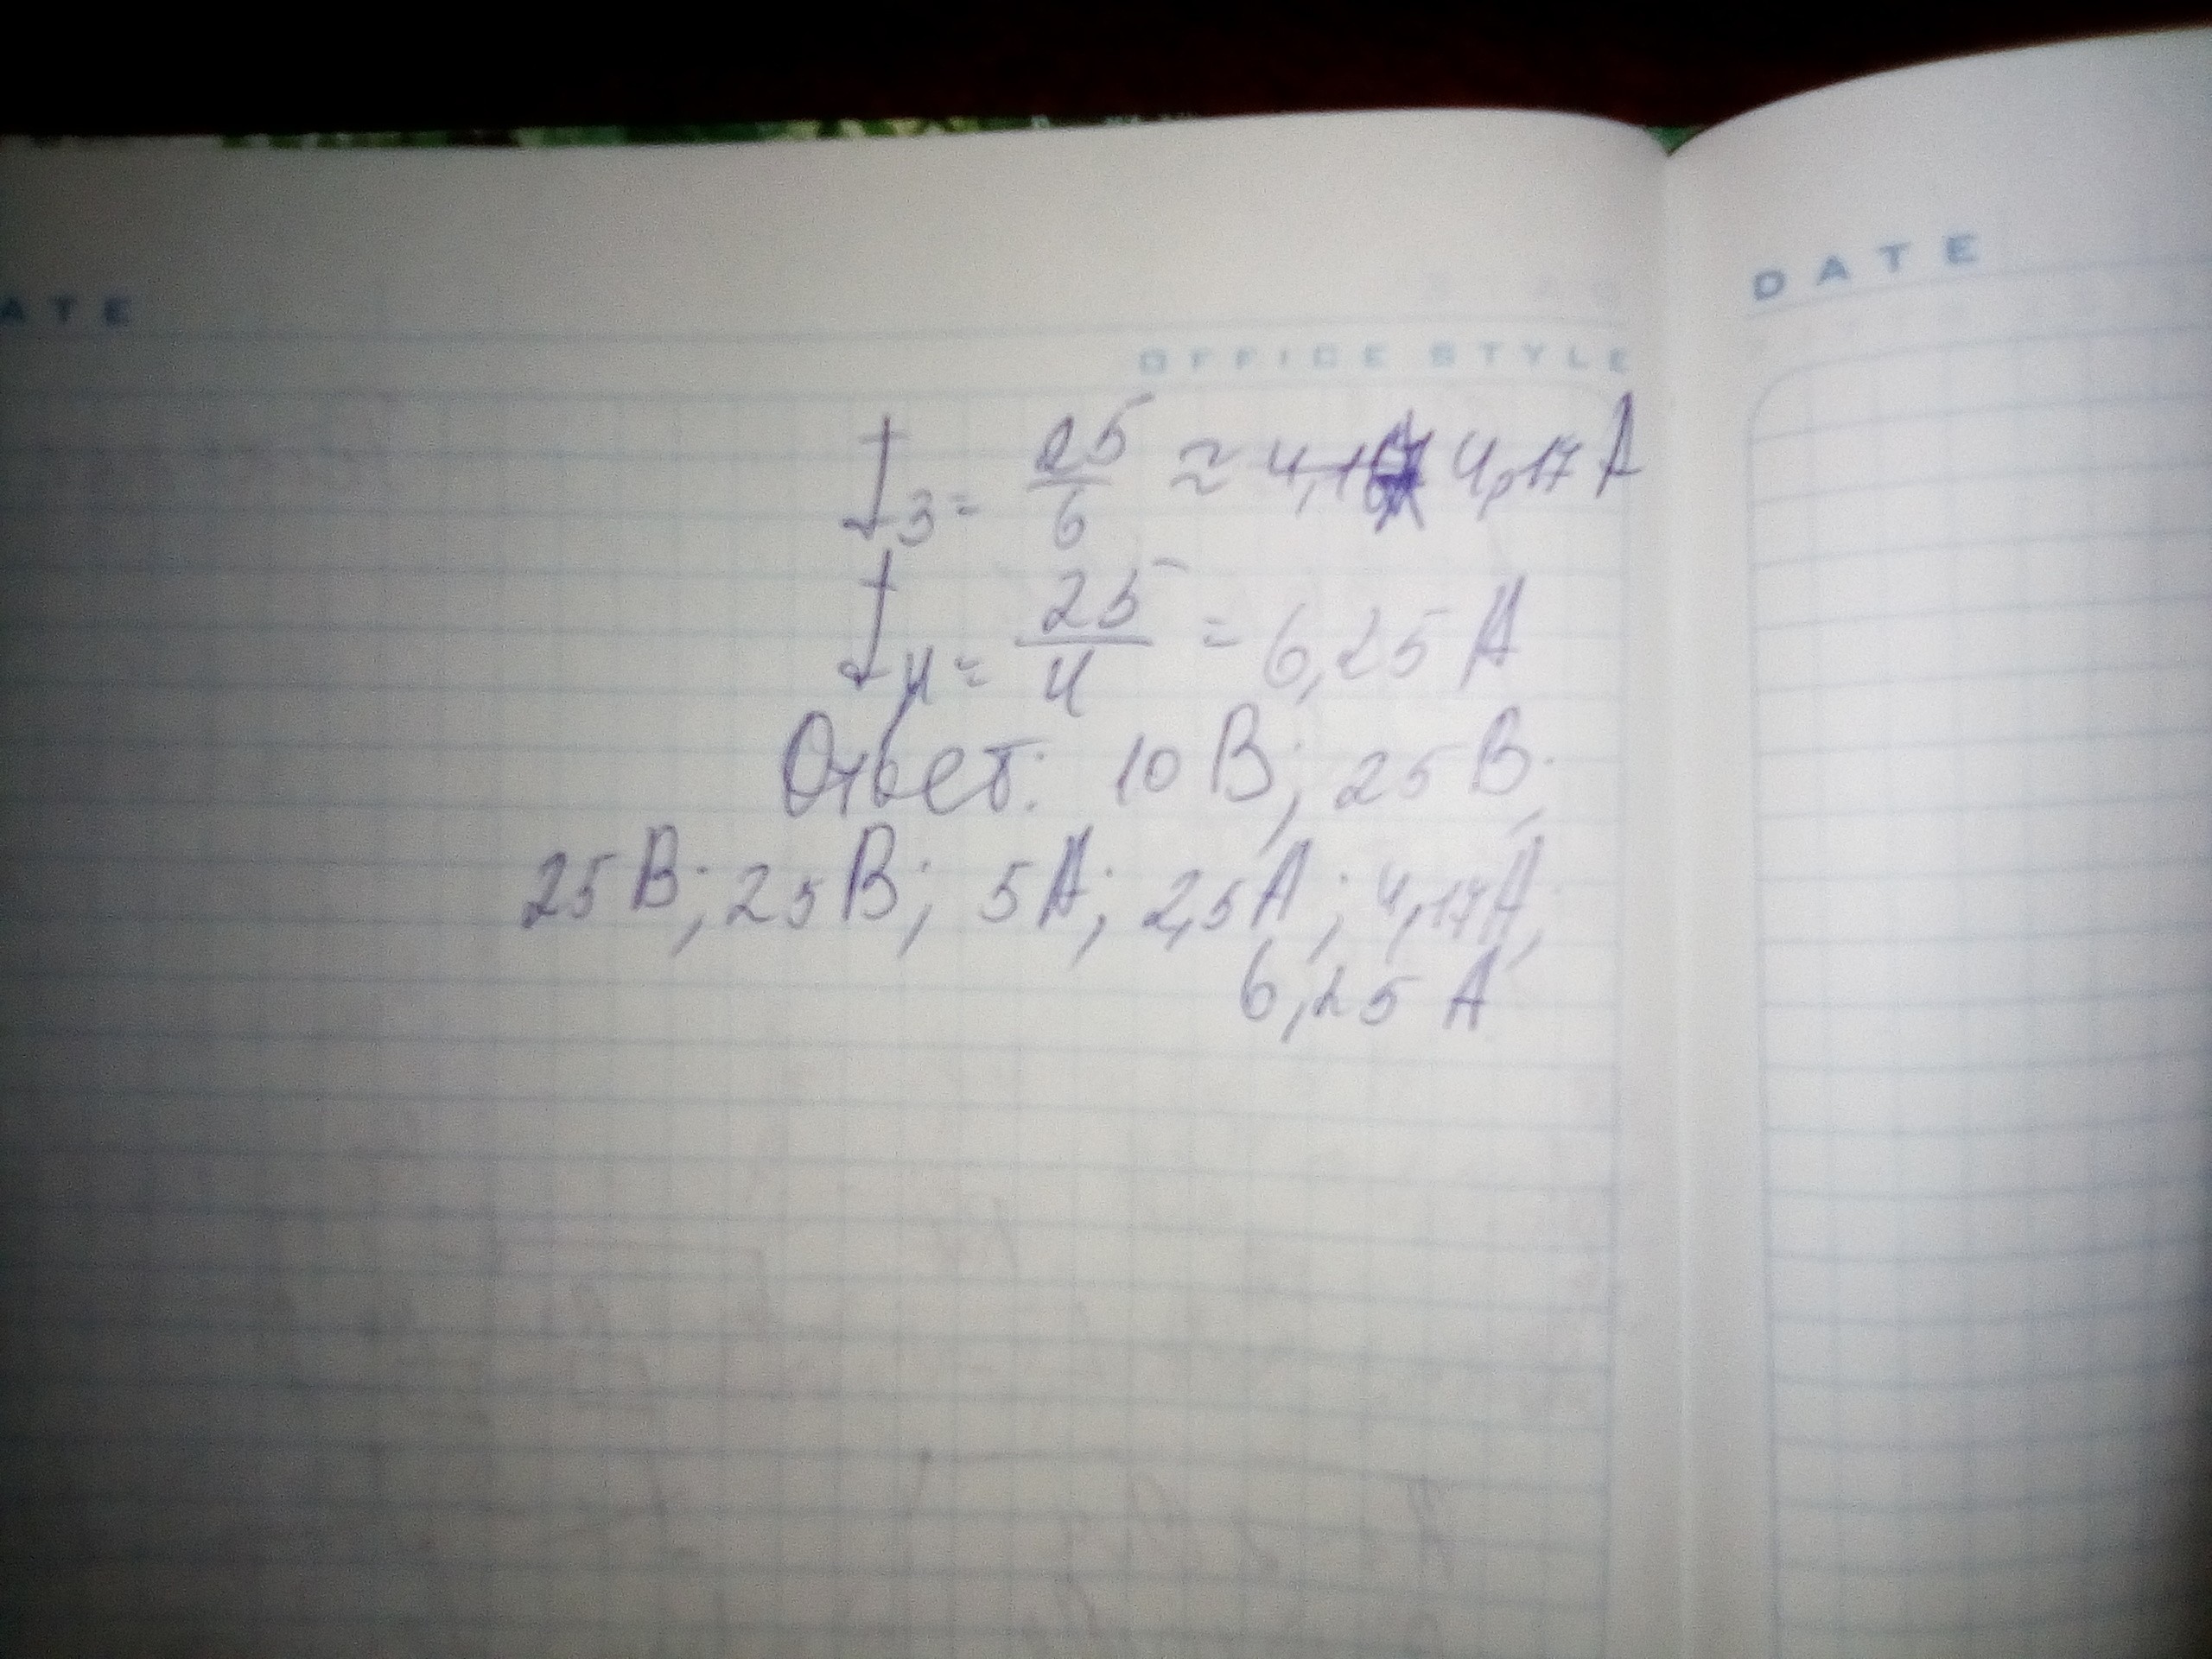 DATE
ATE
OFFICE STYLE
I3 = 25/6 ≈ 4,17 A
I4 = 25/4 = 6,25 A
Ответ: 10 В; 25 В;
25 В; 25 В; 5 А; 2,5 А; 4,17 А;
6,25 А